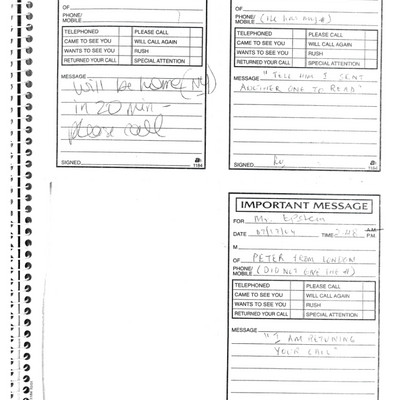 OF
PHONE/
MOBILE
TELEPHONED PLEASE CALL
CAME TO SEE YOU WILL CALL AGAIN
WANTS TO SEE YOU RUSH
RETURNED YOUR CALL SPECIAL ATTENTION
MESSAGE
will be home (NY)
in 20 min –
please call
SIGNED
1184
OF
PHONE/
MOBILE
TELEPHONED PLEASE CALL
CAME TO SEE YOU WILL CALL AGAIN
WANTS TO SEE YOU RUSH
RETURNED YOUR CALL SPECIAL ATTENTION
MESSAGE "TELL HIM I SENT
ANOTHER ONE TO READ"
SIGNED
1184
IMPORTANT MESSAGE
FOR Mr. Epstein
DATE 07/17/04 TIME A.M.
P.M.
M
OF PETER FROM LONDON
PHONE/
MOBILE (DID NOT GIVE THE #)
TELEPHONED PLEASE CALL
CAME TO SEE YOU WILL CALL AGAIN
WANTS TO SEE YOU RUSH
RETURNED YOUR CALL SPECIAL ATTENTION
MESSAGE "I AM RETURNING
YOUR CALL"